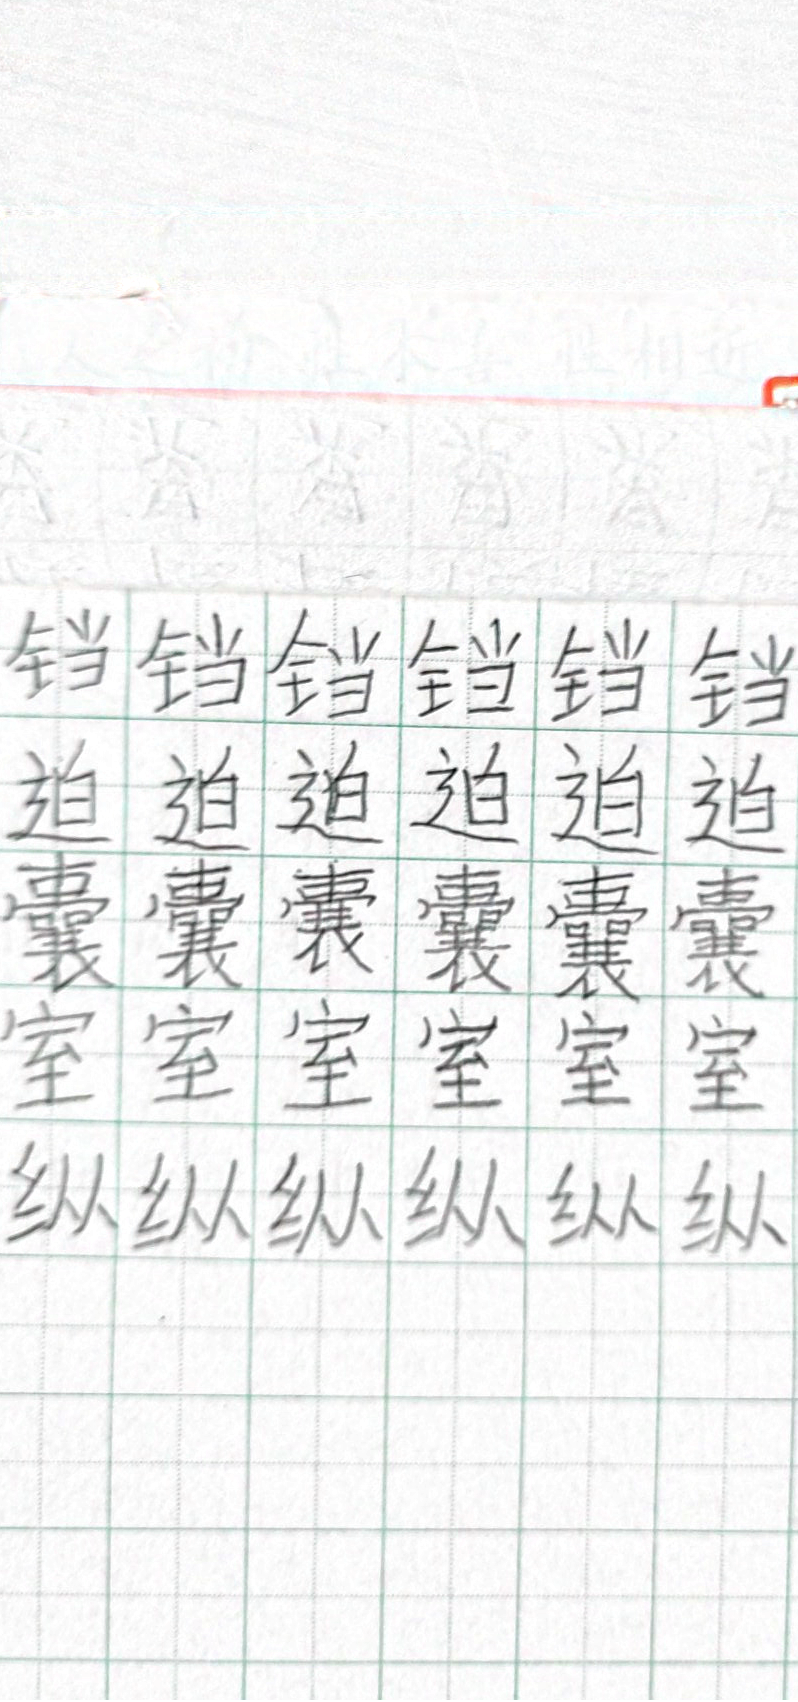 铛铛铛铛铛铛
迫迫迫迫迫迫
囊囊囊囊囊囊
室室室室室室
纵纵纵纵纵纵